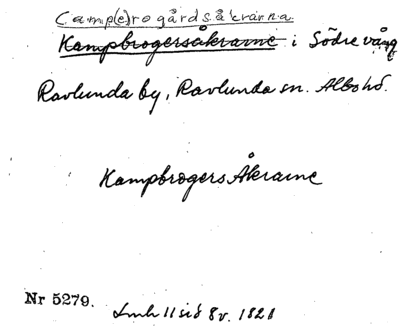 Camp(e)rogårdsåkrarna
Kampbrogersåkrarne i Södre vång
Ravlunda by, Ravlunda sn. Albo hd.
Kampbrogers Åkrarne
Nr 5279.
Lmh 11 sid 8 v. 1821